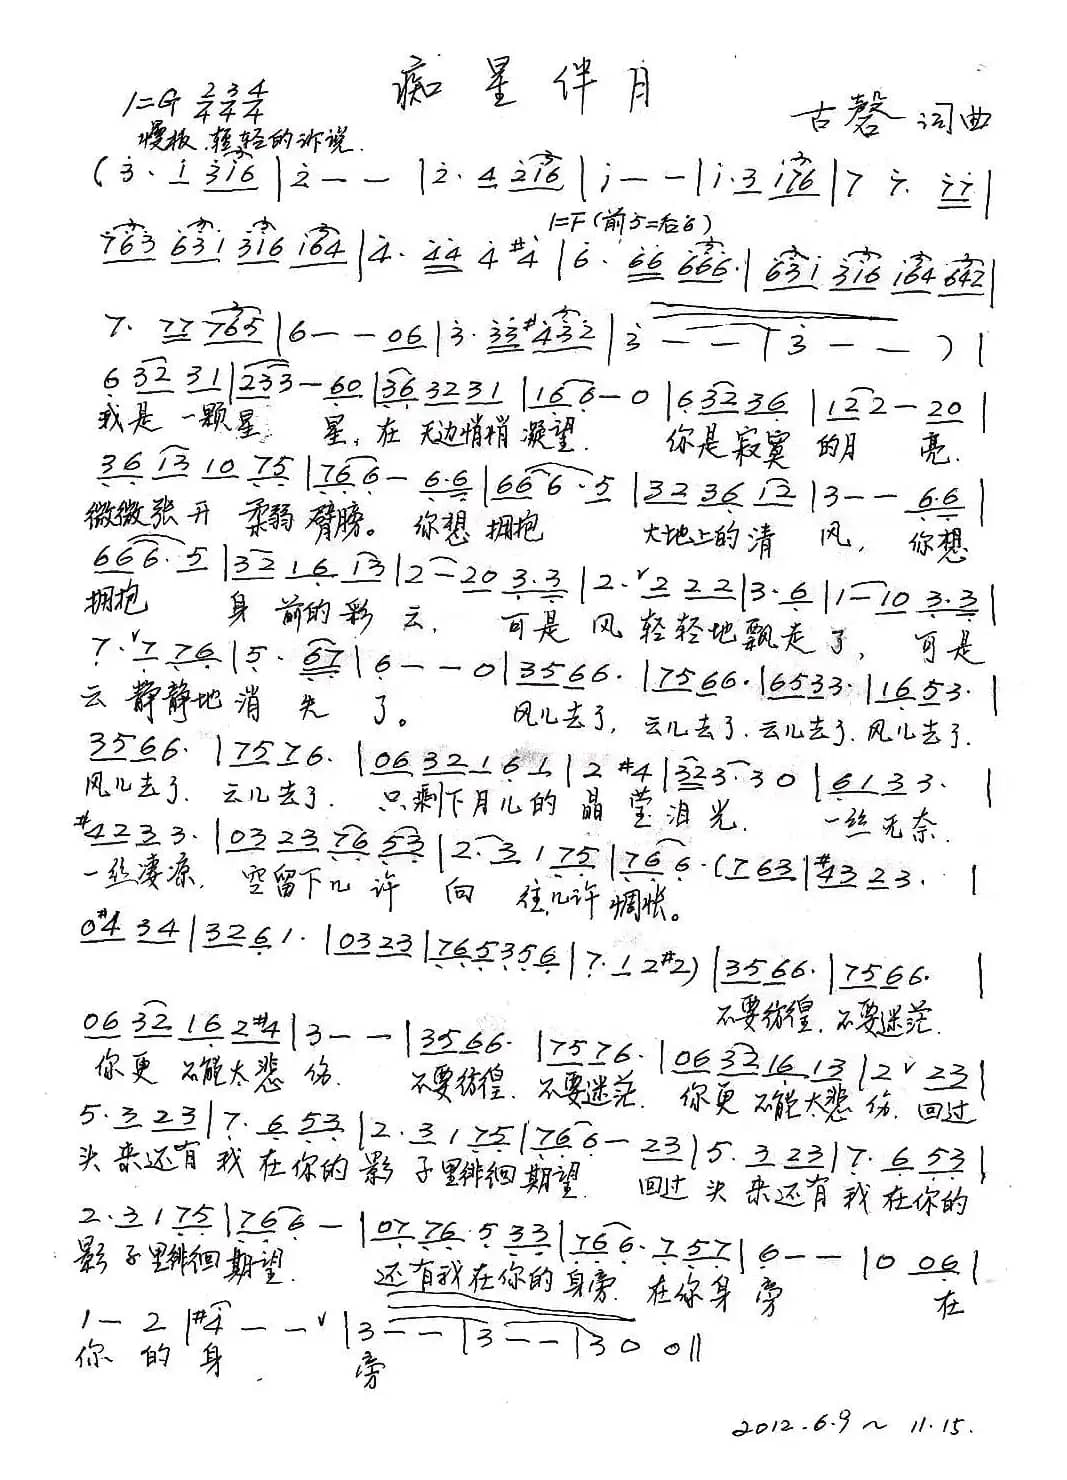 痴星伴月
1=G 2/4 3/4 4/4
古磬 词曲
慢板 轻轻的诉说.
(3· 1 316 | 2 – – | 2· 4 216 | 1 – – | 1·3 176 | 7 7· 77 |
763 631 316 164 | 4· 44 4 #4 | 6· 66 666· | 631 316 164 642 |
1=F (前5=后6)
7· 77 765 | 6 – – 06 | 3· 33 #432 | 3 – – | 3 – – ) |
6 32 31 | 233 – 60 | 36 3231 | 166 – 0 | 63236 | 122 – 20 |
我是一颗星 星, 在天边悄悄凝望. 你是寂寞的月 亮.
36 13 10 75 | 766 – 6·6 | 666·5 | 32 36 12 | 3 – – 6·6 |
微微张开 柔弱臂膀。 你想拥抱 大地上的清 风, 你想
666·5 | 32 16 13 | 2 – 20 3·3 | 2·ˇ2 22 | 3·6 | 1 – 10 3·3 |
拥抱 身前的彩云, 可是风轻轻地飘走了, 可是
7·ˇ7 76 | 5· 67 | 6 – – 0 | 3566· | 7566· | 6533· | 1653· |
云静静地消失了。 风儿去了, 云儿去了. 云儿去了. 风儿去了.
3566· | 7576· | 06 32 1 6 1 | 2 #4 | 323·3 0 | 6133· |
风儿去了. 云儿去了. 只剩下月儿的晶莹泪光. 一丝无奈.
#4233· | 03 23 76 53 | 2·3 1 75 | 766·(763 | #4323· |
一丝凄凉. 空留下几许向往几许惆怅。
0#4 34 | 3261· | 0323 | 765356 | 7·12#2) | 3566· | 7566· |
不要彷徨, 不要迷茫.
06 32 16 2#4 | 3 – – | 3566· | 7576· | 06 32 16 13 | 2ˇ23 |
你更不能太悲伤. 不要彷徨. 不要迷茫. 你更不能太悲伤. 回过
5·3 23 | 7·6 53 | 2·3 1 75 | 766 – 23 | 5·3 23 | 7·6 53 |
头来还有我在你的影子里徘徊期望. 回过头来还有我在你的
2·3 1 75 | 766 – | 07 76·5 33 | 766·7 57 | 6 – – | 0 06 |
影子里徘徊期望. 还有我在你的身旁. 在你身旁 在
1 – 2 | #4 – – ˇ | 3 – – | 3 – – | 3 0 0 ||
你的身. 旁
2012.6.9~11.15.